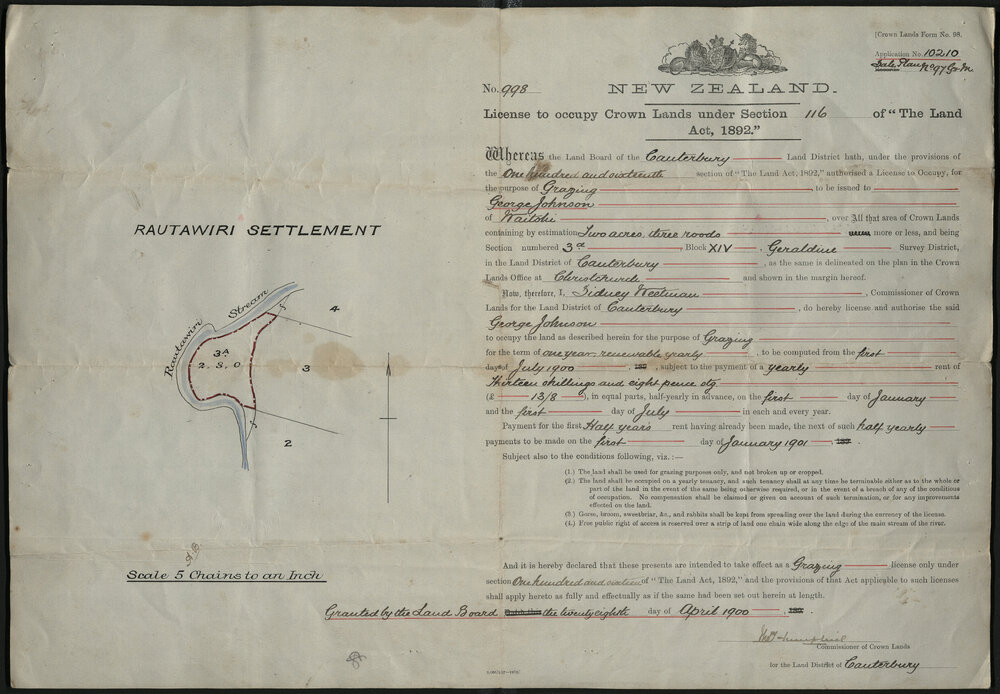 [Crown Lands Form No. 98.
Application No. 10210
Sale Plan No 97 Go. M.
No. 998
NEW ZEALAND.
License to occupy Crown Lands under Section 116 of "The Land
Act, 1892."
Whereas the Land Board of the Canterbury Land District hath, under the provisions of
the One hundred and sixteenth section of "The Land Act, 1892," authorised a License to Occupy, for
the purpose of Grazing, to be issued to
George Johnson
of Waitohi, over All that area of Crown Lands
containing by estimation Two acres, three roods more or less, and being
Section numbered 3a, Block XIV, Geraldine Survey District,
in the Land District of Canterbury, as the same is delineated on the plan in the Crown
Lands Office at Christchurch and shown in the margin hereof.
Now, therefore, I, Sidney Weetman, Commissioner of Crown
Lands for the Land District of Canterbury, do hereby license and authorise the said
George Johnson
to occupy the land as described herein for the purpose of Grazing
for the term of one year, renewable yearly, to be computed from the first
day of July 1900 189, subject to the payment of a yearly rent of
Thirteen shillings and eight pence stg
(£ 13/8), in equal parts, half-yearly in advance, on the first day of January
and the first day of July in each and every year.
Payment for the first Half year's rent having already been made, the next of such half yearly
payments to be made on the first day of January 1901, 189.
Subject also to the conditions following, viz.:—
(1.) The land shall be used for grazing purposes only, and not broken up or cropped.
(2.) The land shall be occupied on a yearly tenancy, and such tenancy shall at any time be terminable either as to the whole or
part of the land in the event of the same being otherwise required, or in the event of a breach of any of the conditions
of occupation. No compensation shall be claimed or given on account of such termination, or for any improvements
effected on the land.
(3.) Gorse, broom, sweetbriar, &c., and rabbits shall be kept from spreading over the land during the currency of the license.
(4.) Free public right of access is reserved over a strip of land one chain wide along the edge of the main stream of the river.
And it is hereby declared that these presents are intended to take effect as a Grazing license only under
section One hundred and sixteen of "The Land Act, 1892," and the provisions of that Act applicable to such licenses
shall apply hereto as fully and effectually as if the same had been set out herein at length.
Granted by the Land Board the twenty eighth day of April 1900, 189.
Commissioner of Crown Lands
for the Land District of Canterbury
RAUTAWIRI SETTLEMENT
Rautawiri Stream
4
3A
2. 3. 0
3
2
Scale 5 Chains to an Inch